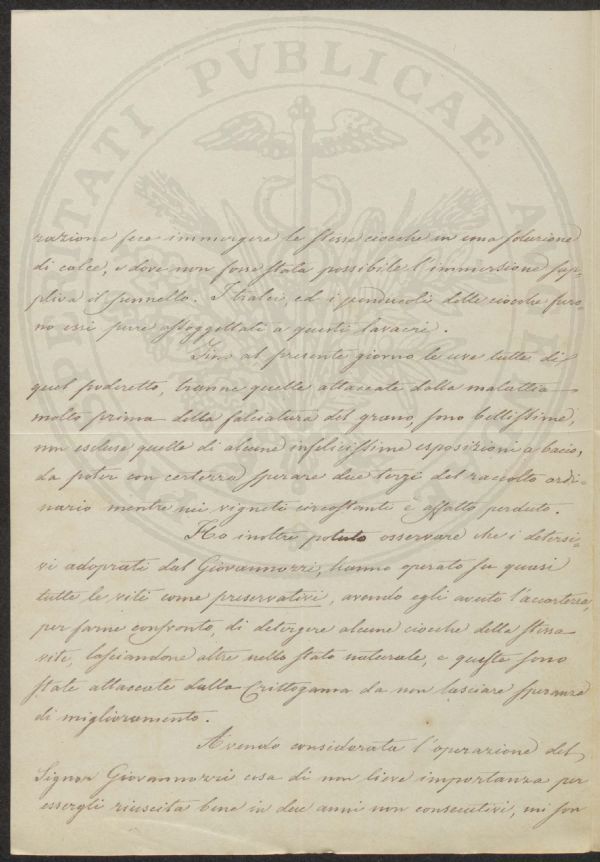 razione fece immergere le stesse ciocche in una soluzione
di calce, e dove non fosse stata possibile l'immersione sup-
pliva il pennello. I tralci, ed i peduncoli delle ciocche furo-
no essi pure assoggettati a questi lavacri.
Fino al presente giorno le uve tutte di
quel poderetto, tranne quelle attaccate dalla malattia
molto prima della falciatura del grano, sono bellissime,
non escluse quelle di alcune infelicissime esposizioni a bacìo,
da poter con certezza sperare due terzi del raccolto ordi-
nario mentre nei vigneti circostanti è affatto perduto.
Ho inoltre potuto osservare che i detersi-
vi adoprati dal Giovannozzi, hanno operato su quasi
tutte le viti come preservativi, avendo egli avuto l'accortezza,
per farne confronto, di detergere alcune ciocche della stessa
vite, lasciandone altre nello stato naturale, e queste sono
state attaccate dalla Crittogama da non lasciare speranza
di miglioramento.
Avendo considerata l'operazione del
Signor Giovannozzi cosa di non lieve importanza per
essergli riuscita bene in due anni non consecutivi, mi son